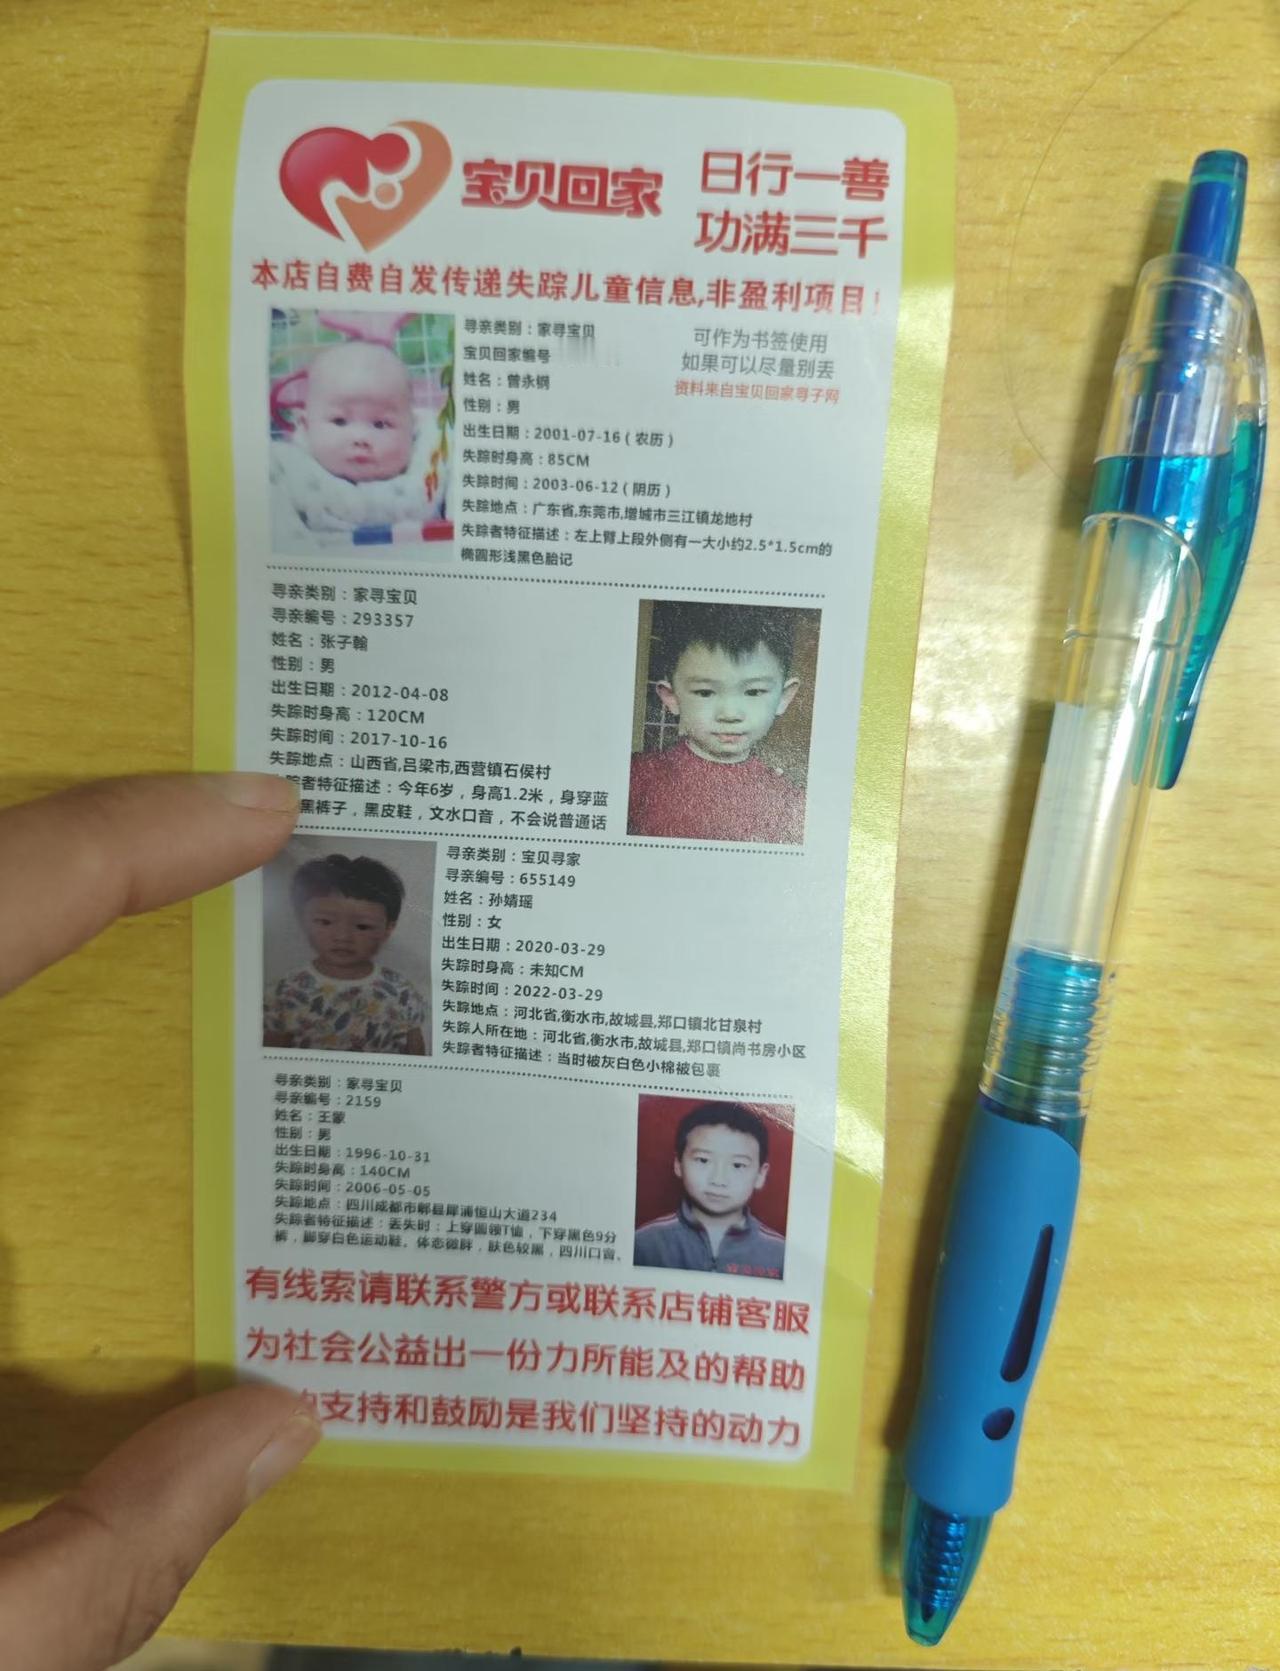 宝贝回家
日行一善
功满三千
本店自费自发传递失踪儿童信息,非盈利项目!
寻亲类别：家寻宝贝
宝贝回家编号
姓名：曾永钢
性别：男
出生日期：2001-07-16（农历）
失踪时身高：85CM
失踪时间：2003-06-12（阴历）
失踪地点：广东省,东莞市,增城市三江镇龙地村
失踪者特征描述：左上臂上段外侧有一大小约2.5*1.5cm的
椭圆形浅黑色胎记
可作为书签使用
如果可以尽量别丢
资料来自宝贝回家寻子网
寻亲类别：家寻宝贝
寻亲编号：293357
姓名：张子翰
性别：男
出生日期：2012-04-08
失踪时身高：120CM
失踪时间：2017-10-16
失踪地点：山西省,吕梁市,西营镇石侯村
踪者特征描述：今年6岁，身高1.2米，身穿蓝
黑裤子，黑皮鞋，文水口音，不会说普通话
寻亲类别：宝贝寻家
寻亲编号：655149
姓名：孙婧瑶
性别：女
出生日期：2020-03-29
失踪时身高：未知CM
失踪时间：2022-03-29
失踪地点：河北省,衡水市,故城县,郑口镇北甘泉村
失踪人所在地：河北省,衡水市,故城县,郑口镇尚书房小区
失踪者特征描述：当时被灰白色小棉被包裹
寻亲类别：家寻宝贝
寻亲编号：2159
姓名：王蒙
性别：男
出生日期：1996-10-31
失踪时身高：140CM
失踪时间：2006-05-05
失踪地点：四川成都市郫县犀浦恒山大道234
失踪者特征描述：丢失时：上穿圆领T恤，下穿黑色9分
裤，脚穿白色运动鞋。体态微胖，肤色较黑，四川口音。
有线索请联系警方或联系店铺客服
为社会公益出一份力所能及的帮助
支持和鼓励是我们坚持的动力